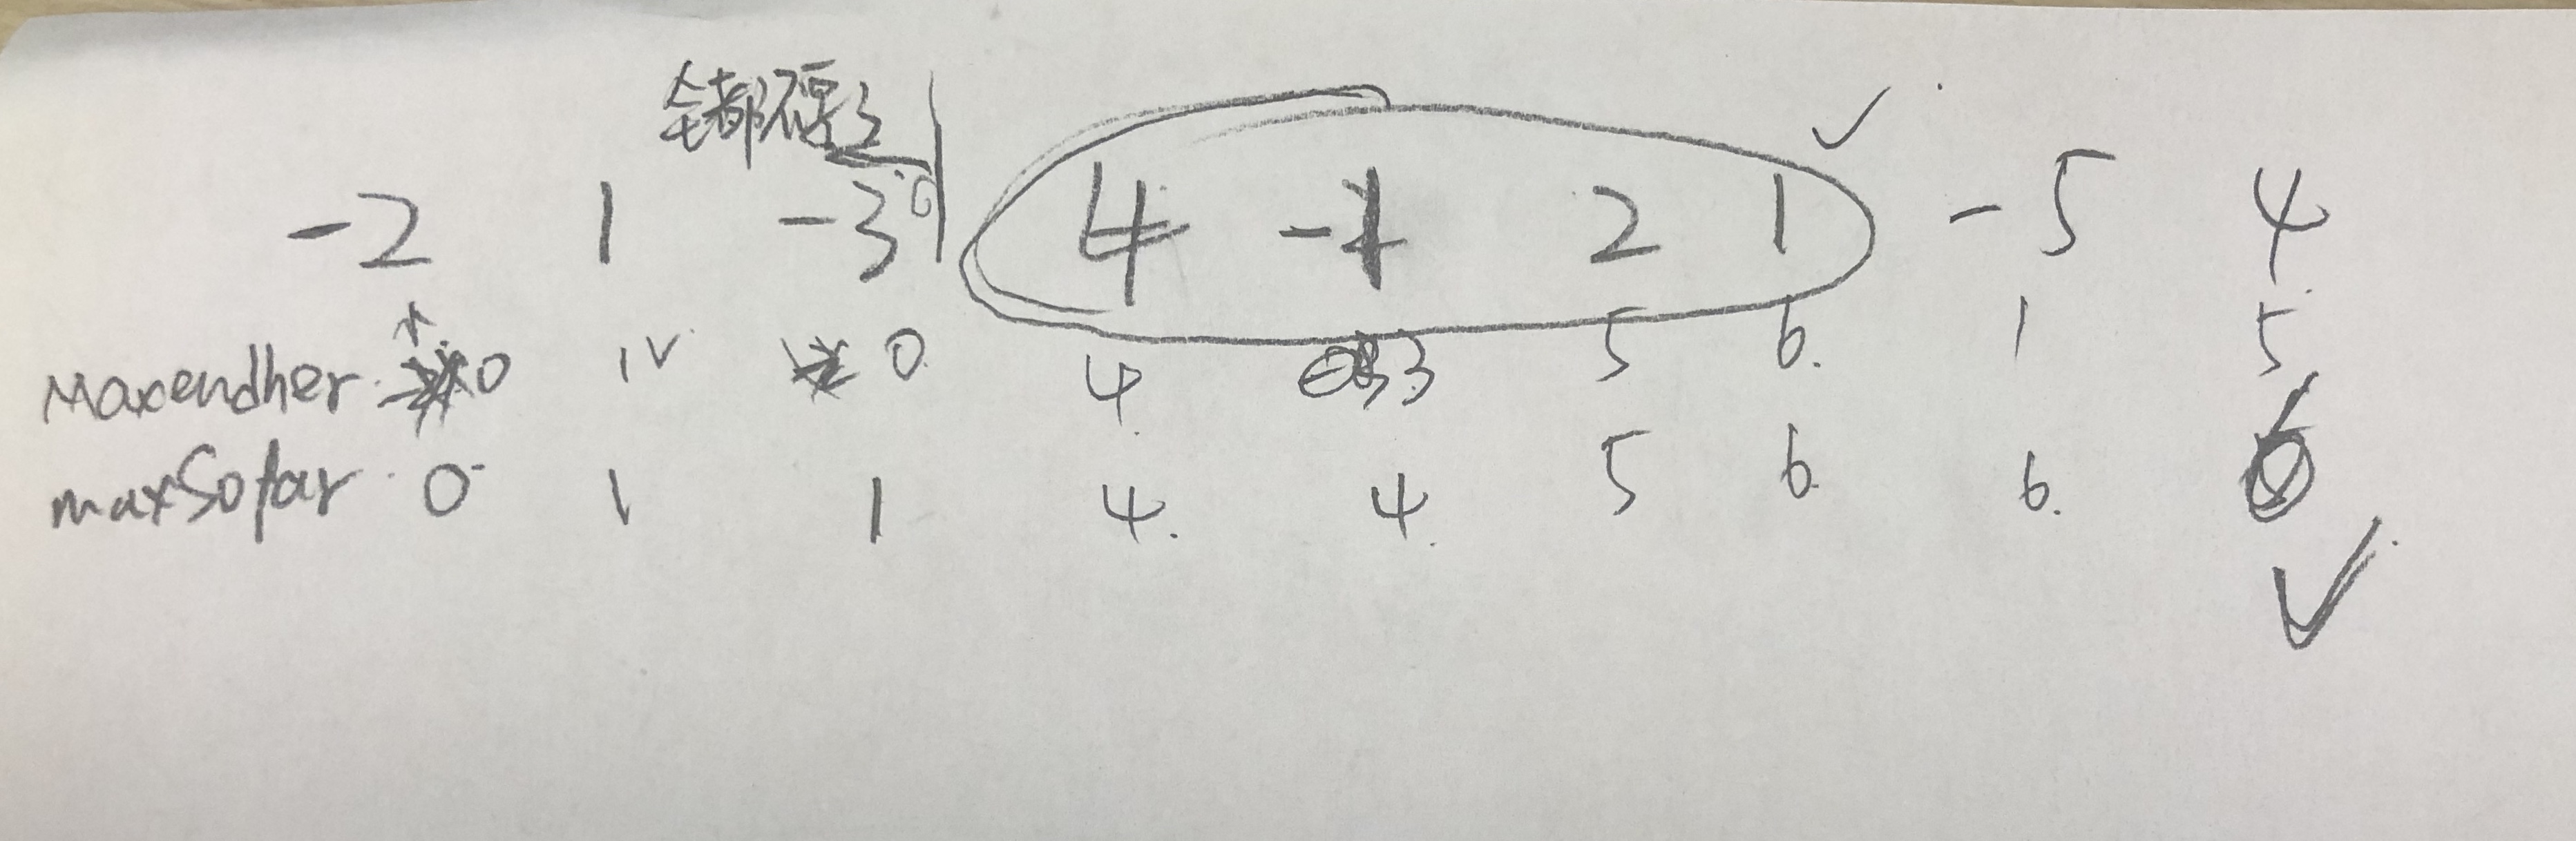 全都不要了
-2 1 -3 4 -1 2 1 -5 4
Maxendher 0 1 0 4 3 5 6 1 5
maxSofar 0 1 1 4 4 5 6 6 6